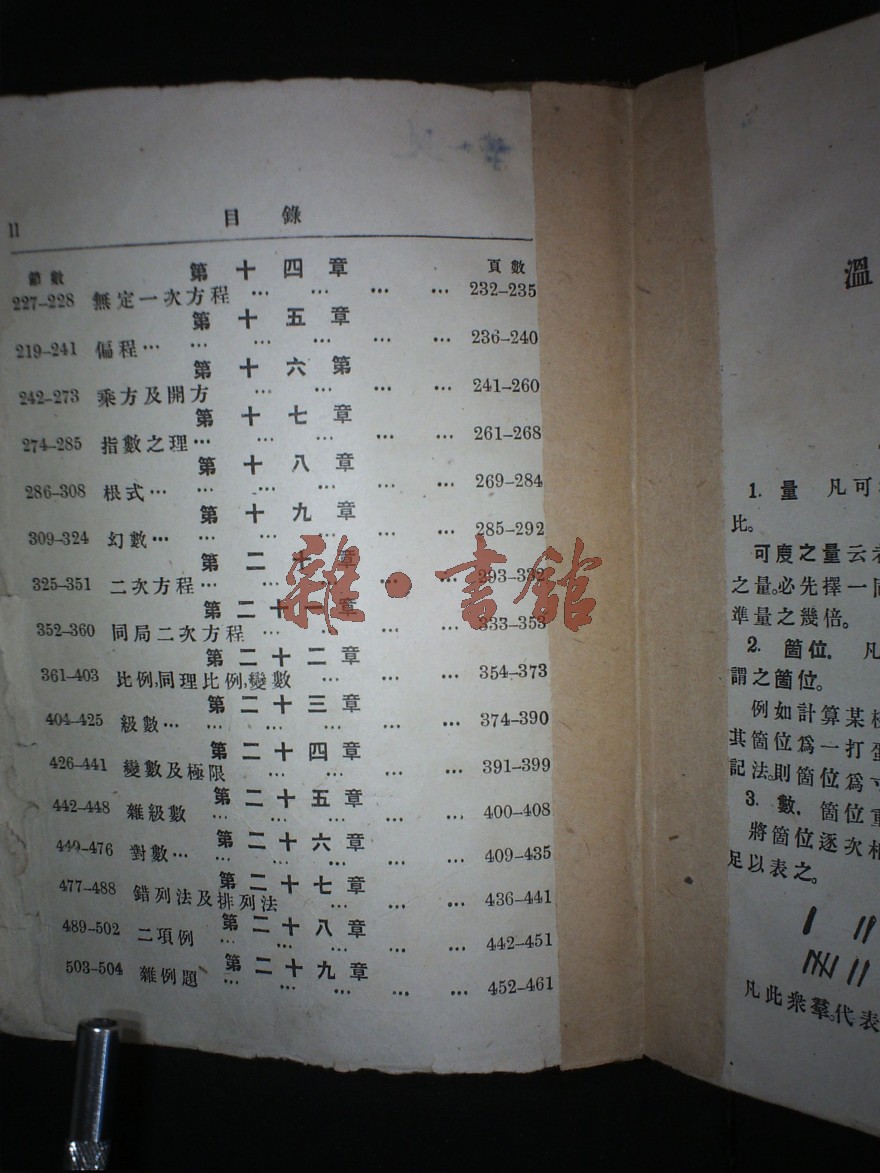 11 目錄
節數 第十四章 頁數
227–228 無定一次方程 … … … … 232–235
第十五章
219–241 偏程… … … … … … 236–240
第十六第
242–273 乘方及開方 … … … … 241–260
第十七章
274–285 指數之理… … … … … 261–268
第十八章
286–308 根式… … … … … … 269–284
第十九章
309–324 幻數… … … … … … 285–292
第二十章
325–351 二次方程… … … … … 293–332
第二十一章
352–360 同局二次方程 … … … … 333–353
第二十二章
361–403 比例,同理比例,變數 … … … 354–373
第二十三章
404–425 級數… … … … … … 374–390
第二十四章
426–441 變數及極限 … … … … 391–399
第二十五章
442–448 雜級數 … … … … … 400–408
第二十六章
449–476 對數… … … … … … 409–435
第二十七章
477–488 錯列法及排列法 … … … 436–441
第二十八章
489–502 二項例 … … … … … 442–451
第二十九章
503–504 雜例題 … … … … … 452–461
雜·書館
溫
1. 量 凡可
比。
可度之量云者
之量。必先擇一同
準量之幾倍。
2. 箇位. 凡
謂之箇位。
例如計算某
其箇位爲一打蛋
記法。則箇位爲寸
3. 數. 箇位重
將箇位逐次相
足以表之。
凡此衆羣。代表